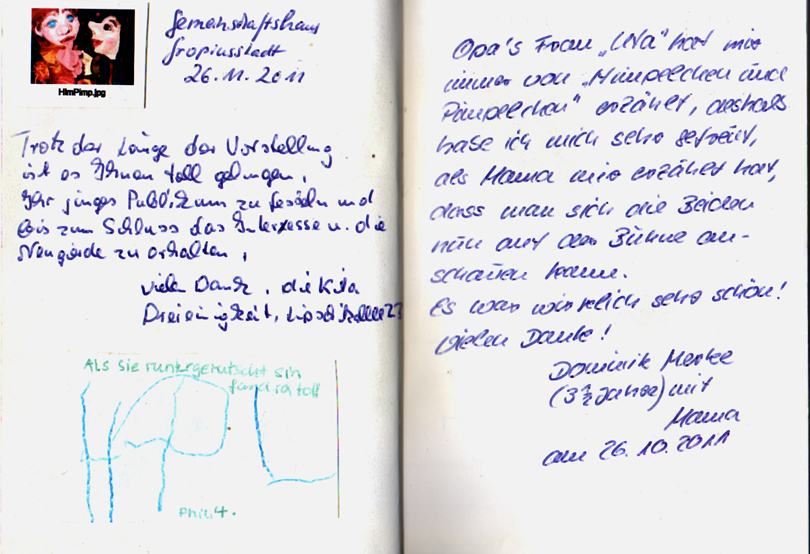 HimPimp.jpg
Gemeinschaftshaus
Gropiusstadt
26.11.2011
Trotz der Länge der Vorstellung
ist es Ihnen toll gelungen,
Ihr junges Publikum zu fesseln und
bis zum Schluss das Interesse u. die
Neugierde zu erhalten,
vielen Dank, die Kita
Dreieinigkeit, Lipschitzallee 23
Als sie runtergerutscht sin
fand ich toll
Phil 4.
Opa's Frau „Uva" hat mir
immer von „Himpelchen und
Pimpelchen" erzählt, deshalb
habe ich mich sehr gefreut,
als Mama mir erzählt hat,
dass man sich die Beiden
nun auf der Bühne an-
schauen kann.
Es war wirklich sehr schön!
Vielen Danke!
Dominik
(3 1/2 Jahre) mit
Mama
am 26.10.2011